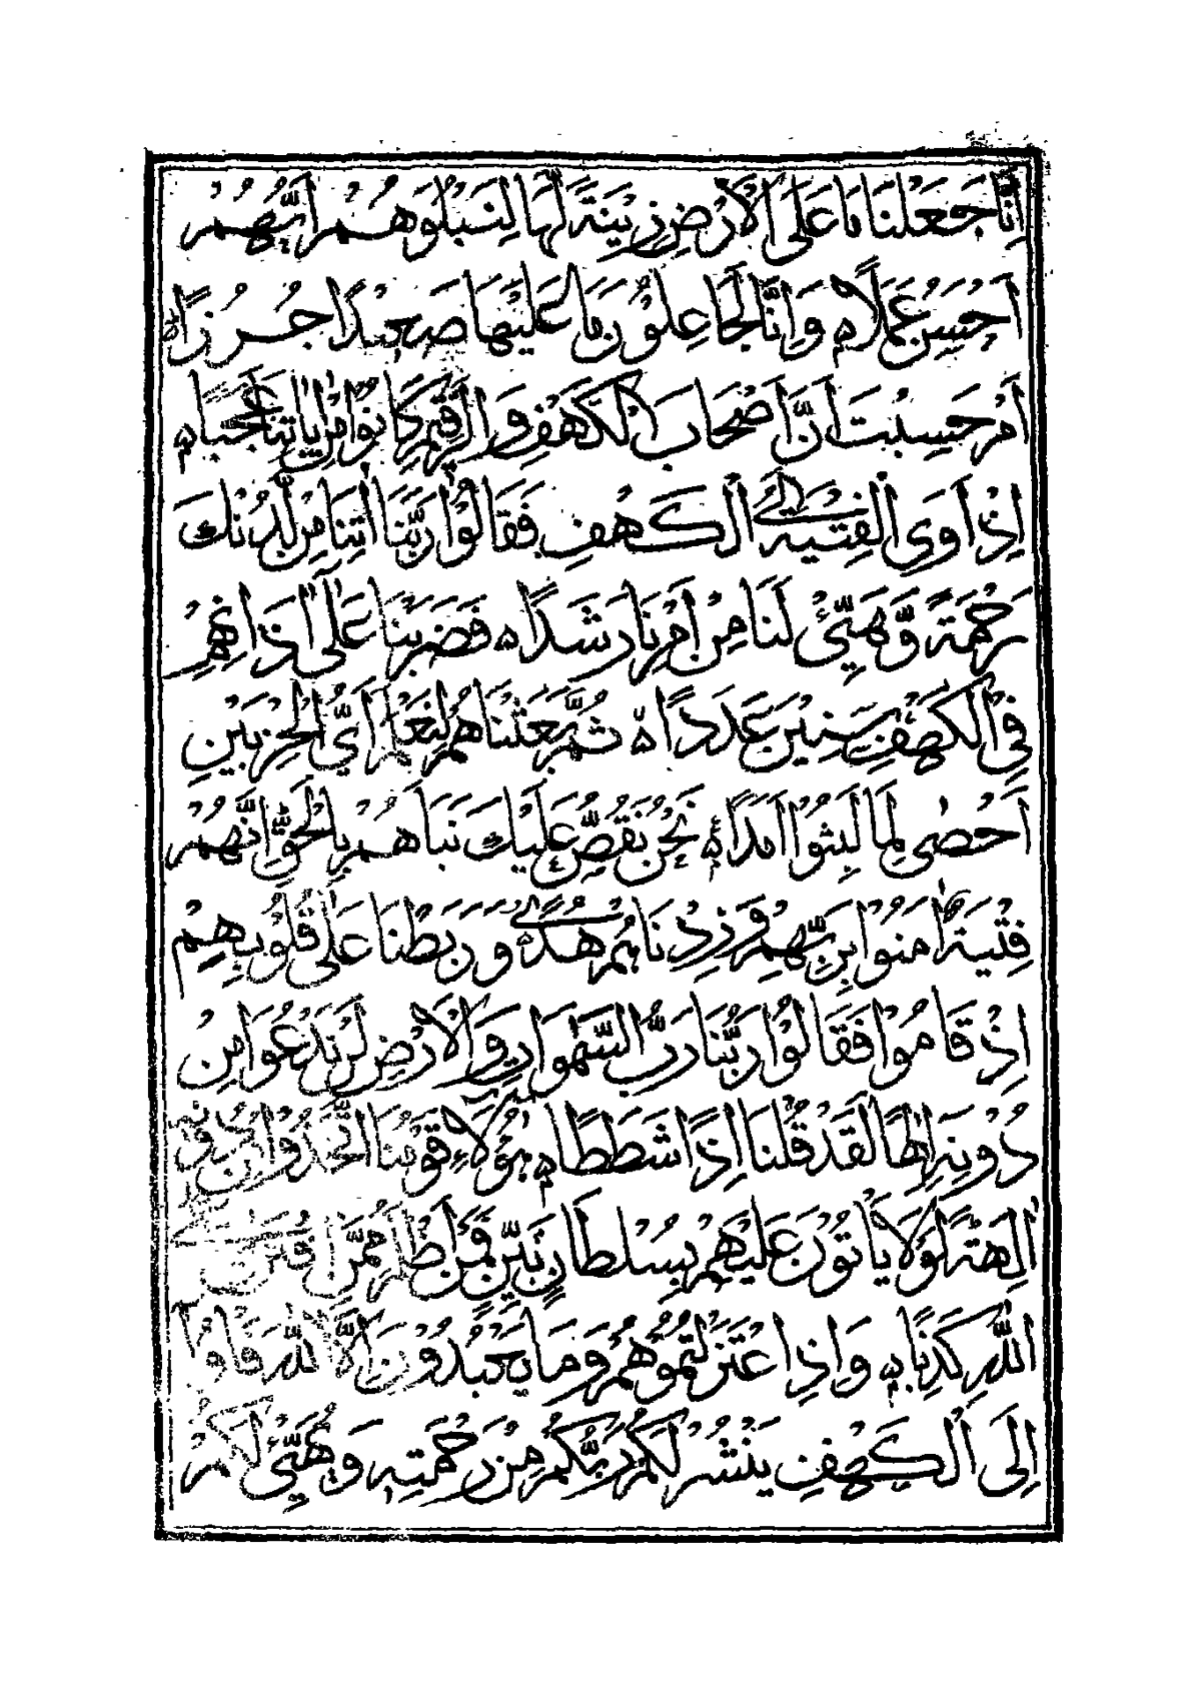 اِنَّا جَعَلْنَا مَا عَلَى الْاَرْضِ زِيْنَةً لَّهَا لِنَبْلُوَهُمْ اَيُّهُمْ
اَحْسَنُ عَمَلًا ه وَاِنَّا لَجَاعِلُوْنَ مَا عَلَيْهَا صَعِيْدًا جُرُزًا ه
اَمْ حَسِبْتَ اَنَّ اَصْحَابَ الْكَهْفِ وَالرَّقِيْمِ كَانُوْا مِنْ اٰيَاتِنَا عَجَبًا ه
اِذْ اَوَى الْفِتْيَةُ اِلَى الْكَهْفِ فَقَالُوْا رَبَّنَا اٰتِنَا مِنْ لَّدُنْكَ
رَحْمَةً وَّهَيِّئْ لَنَا مِنْ اَمْرِنَا رَشَدًا ه فَضَرَبْنَا عَلٰى اٰذَانِهِمْ
فِى الْكَهْفِ سِنِيْنَ عَدَدًا ه ثُمَّ بَعَثْنَاهُمْ لِنَعْلَمَ اَىُّ الْحِزْبَيْنِ
اَحْصٰى لِمَا لَبِثُوْا اَمَدًا ه نَحْنُ نَقُصُّ عَلَيْكَ نَبَاَهُمْ بِالْحَقِّ اِنَّهُمْ
فِتْيَةٌ اٰمَنُوْا بِرَبِّهِمْ وَزِدْنَاهُمْ هُدًى وَرَبَطْنَا عَلٰى قُلُوْبِهِمْ
اِذْ قَامُوْا فَقَالُوْا رَبُّنَا رَبُّ السَّمٰوَاتِ وَالْاَرْضِ لَنْ نَّدْعُوَا مِنْ
دُوْنِهٖ اِلٰهًا لَقَدْ قُلْنَا اِذًا شَطَطًا ه هٰؤُلَاءِ قَوْمُنَا اتَّخَذُوْا مِنْ دُوْنِهٖ
اٰلِهَةً لَوْلَا يَاْتُوْنَ عَلَيْهِمْ بِسُلْطَانٍ بَيِّنٍ فَمَنْ اَظْلَمُ مِمَّنِ افْتَرٰى عَلَى
اللّٰهِ كَذِبًا ه وَاِذِ اعْتَزَلْتُمُوْهُمْ وَمَا يَعْبُدُوْنَ اِلَّا اللّٰهَ فَاْوٗا
اِلَى الْكَهْفِ يَنْشُرْ لَكُمْ رَبُّكُمْ مِنْ رَحْمَتِهٖ وَيُهَيِّئْ لَكُمْ